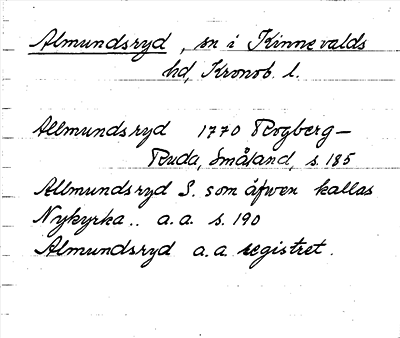 Almundsryd, sn i Kinnevalds
hd, Kronob. l.
Allmundsryd 1770 Rogberg—
Ruda, Småland, s. 185
Allmundsryd S. som äfwen kallas
Nykyrka.. a.a. s. 190
Almundsryd a.a. registret.